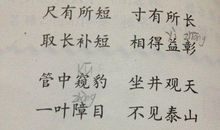 尺有所短 寸有所长
取长补短 相得益彰
管中窥豹 坐井观天
一叶障目 不见泰山